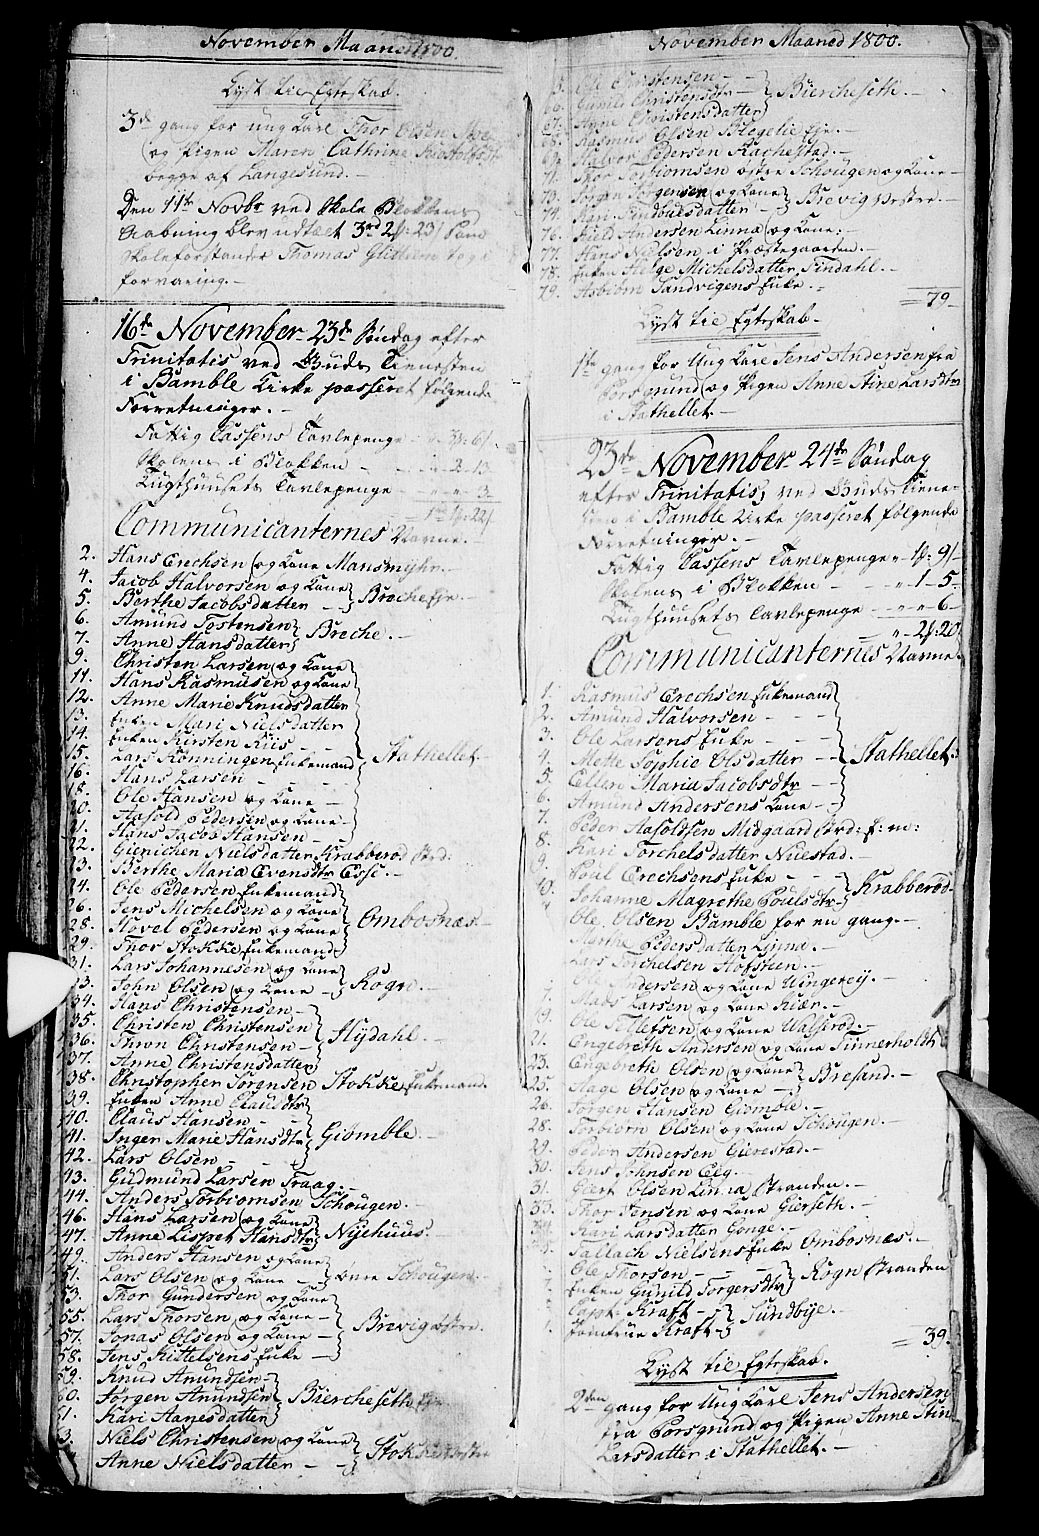 November Maaned 1800.
Lyst til Egteskab.
3de gang for ung Karl Thor Olsen Moe
og Pigen Maren Cathrine
begge af Langesund.
Den 11te Novbr ved Skole Blokkens
Aabning blev udtaet 3rd 2ß: 23/ som
Skoleforstander Thomas tog i
forvaring.
16de November 23de Søndag efter
Trinitatis ved Guds Tienesten
i Bamble Kirke passeret følgende
Forretninger.
Fattig Cassens Tavlepenge 3ß: 6/.
Skolens i Blokken 2. 13
Tugthuusets Tavlepenge 3.
1rd 1ß: 22/
Communicanternes Navne.
2. Hans Erechsen og Kone Mansmyhr.
4. Jacob Halvorsen og Kone
5. Berthe Jacobsdatter Brechefje.
6. Amund Tostensen
7. Anne Hansdatter Breche.
9. Christen Larsen og Kone
11. Hans Rasmusen og Kone
12. Anne Marie Knudsdatter
13. Enken Mari Nielsdatter
14. Enken Kirsten Riis
15. Lars Rönningen Enkemand Stathellet.
16. Hans Larsen
18. Ole Hansen og Kone
20. Aasold Pedersen og Kone
21. Hans Jacob Hansen
22. Gienichen Nielsdatter Krabberöd Str:
23. Berthe Maria Evensdtr Esse.
24. Ole Pedersen Enkemand
26. Jens Michelsen og Kone
28. Hovel Pedersen og Kone Ombosnæs.
29. Thor Stokke Enkemand
31. Lars Johannesen og Kone
33. John Olsen og Kone Rogn.
34. Hans Christensen
35. Christen Christensen
36. Thron Christensen Hydahl.
37. Anne Christensdatter
38. Christopher Sörensen Stokke Enkemand
39. Enken Anne Clausdtr
40. Claus Hansen
41. Inger Marie Hansdtr Giömble.
42. Lars Olsen
43. Gudmund Larsen Traag.
44. Anders Torbiornsen Schougen.
46. Hans Larsen og Kone
47. Anne Lispet Hansdtr Nyehuus.
49. Anders Hansen og Kone
51. Lars Olsen og Kone övre Schougen.
53. Thor Gundersen og Kone
55. Lars Thorsen og Kone
57. Jonas Olsen og Kone Brevig östre.
58. Jens Kittelsens Enke
59. Knud Anundsen
60. Jörgen Anundsen Biercheseth
61. Kari Aanesdatter
63. Niels Christensen og Kone
Anne Nielsdatter Stokke östre
November Maaned 1800.
5. Ole Christensen
66. Gunild Christensdtr Biercheseth.
67. Anne Christensdatter
68. Rasmus Olsen Blegelie fje.
69. Halvor Pedersen Rachestad.
71. Thor Torbiornsen östre Schougen og Kone
73. Jörgen Jörgensen og Kone
74. Kari Findouesdatter Brevig Vestre.
76. Kield Andersen Linna og Kone.
77. Hans Nielsen i Præstegaarden.
78. Enken Helge Michelsdatter Tindahl.
79. Asbiörn Sandvigens Enke.
= 79
Lyst til Egteskab.
1te gang for Ung Karl Jens Andersen fra
Porsgrund og Pigen Anne Stine Larsdtr
i Stathellet
23de November 24de Söndag
efter Trinitatis, ved Guds Tiene-
sten i Bamble Kirke passeret følgende
Forretninger.
Fattig Cassens Tavlepenge 1ß: 9/
Skolens i Blokken 1 - 5-
Tugthuusets Tavlepenge 6
2ß: 20
Communicanternes Navne.
1. Rasmus Erechsen Enkemand
2. Amund Halvorsen
3. Ole Larsens Enke
4. Mette Sophie Olsdatter Stathellet:
5. Ellen Maria Jacobsdtr
6. Amund Andersens Kone
7. Peder Aasoldsen Midgaard Strd: E: m:
8. Kari Torchelsdatter Nuestad.
9. Poul Erechsens Enke
10. Johanne Magrethe Poulsdtr Krabberöd
Ole Olsen Bamble for en gang.
Marthe Pedersdatter Linna.
Lars Torchelsen Hofsteen.
Ole Andersen og Kone
Mads Larsen og Kone Kiær.
19. Ole Tollefsen og Kone Valleröd.
21. Engebreth Andersen og Kone Finnerholdt
23. Engebreth Olsen og Kone
25. Aage Olsen og Kone Bresand.
26. Jörgen Hansen Giömble.
28. Torbiörn Olsen og Kone Schougen.
29. Peder Andersen Gierestad.
30. Jens Johnsen Eeg.
31. Giert Olsen Linna Stranden.
33. Thor Jensen og Kone Gierseth.
34. Kari Larsdatter Gonge.
Tallach Nielsens Enke Ombosnæs.
Ole Thorsen
Enken Gunild Torgersdtr Rogn Stranden
Capt. Kraft
Jomfrue Kraft Sundbye.
= 39.
Lyst til Egteskab.
2den gang for Ung Karl Jens Andersen
fra Porsgrund og Pigen Anne Stin
Larsdatter i Stathellet.